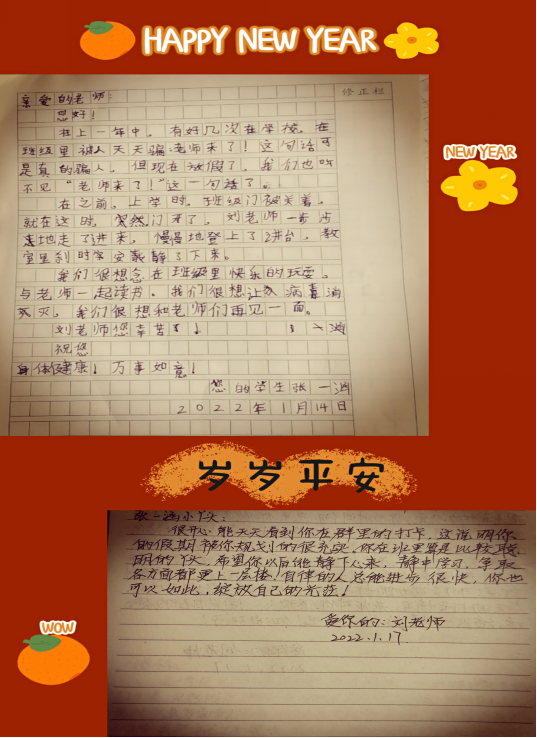 HAPPY NEW YEAR
修正栏
亲爱的老师:
您好!
在上一年中,有好几次在学校,在
班级里被人天天骗:老师来了!这句话可
是真的骗人,但现在放假了,我们也听
不见“老师来了!”这一句话了。
在之前,上学时,班级门被关着,
就在这时,突然门开了,刘老师一步步
走地走了进来,慢慢地登上了讲台,教
室里刹时安静了下来。
我们很想念在班级里快乐的玩耍,
与老师一起读书。我们很想让病毒消
灭,我们很想和老师们再见一面。
刘老师您辛苦了!
祝您
身体健康!万事如意!
您的学生张一涵
2022年1月14日
NEW YEAR
岁岁平安
张一涵小伙:
很开心能天天看到你在群里的打卡,这说明你
的假期被你规划的很充实,你在班里算是比较聪
明的伙,希望你以后能静下心来,静中学习,争取
各方面都更上一层楼!自律的人总能进步很快,你也
可以如此,绽放自己的光芒!
爱你的:刘老师
2022.1.17.
WOW